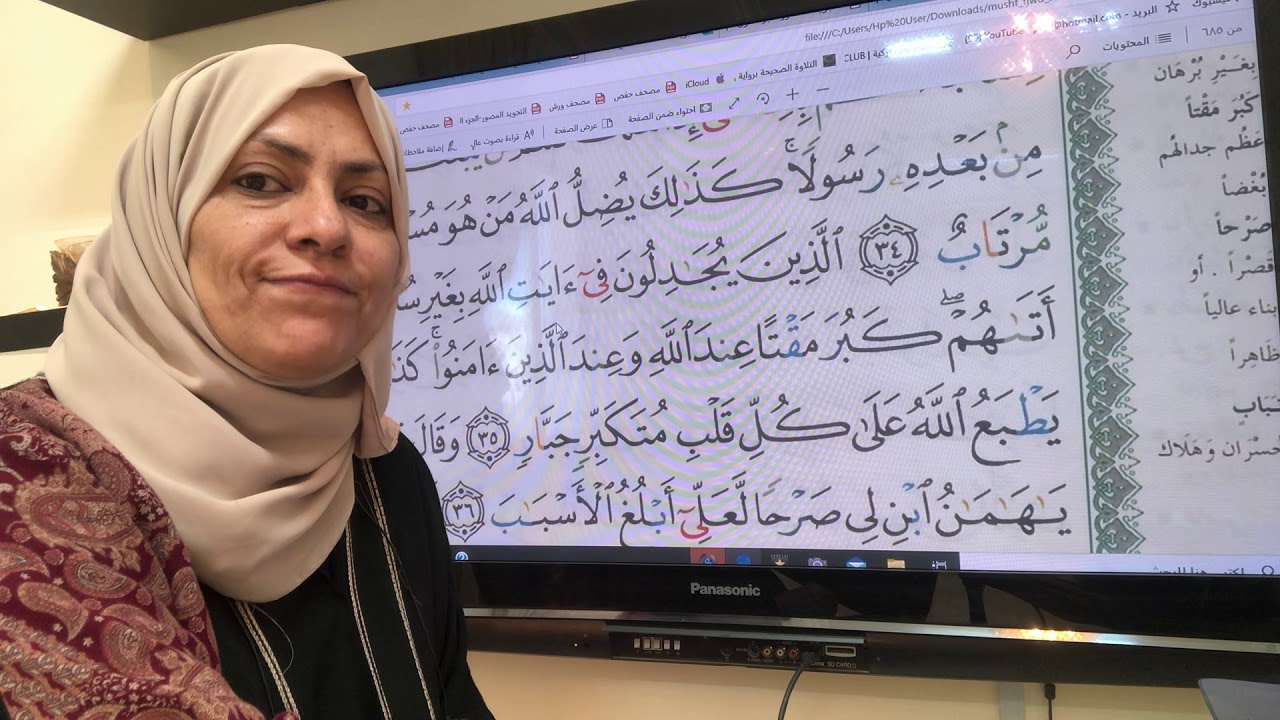 file:///C:/Users/Hp%20User/Downloads/mushf_
البريد - @hotmail.com
YouTube
CLUB |
التلاوة الصحيحة برواية
iCloud
مصحف حفص
مصحف ورش
التجويد المصور-الجزء
مصحف حفص
من ٦٨٥
المحتويات
احتواء ضمن الصفحة
عرض الصفحة
قراءة بصوت عالٍ
إضافة ملاحظات
مِنۢ بَعْدِهِۦ رَسُولًاۚ كَذَٰلِكَ يُضِلُّ ٱللَّهُ مَنْ هُوَ
مُّرْتَابٌ ٣٤ ٱلَّذِينَ يُجَٰدِلُونَ فِىٓ ءَايَٰتِ ٱللَّهِ بِغَيْرِ
أَتَىٰهُمْۖ كَبُرَ مَقْتًا عِندَ ٱللَّهِ وَعِندَ ٱلَّذِينَ ءَامَنُوا۟ۚ
يَطْبَعُ ٱللَّهُ عَلَىٰ كُلِّ قَلْبِ مُتَكَبِّرٍ جَبَّارٍ ٣٥ وَقَالَ
يَٰهَٰمَٰنُ ٱبْنِ لِى صَرْحًا لَّعَلِّىٓ أَبْلُغُ ٱلْأَسْبَٰبَ ٣٦
بِغَيْرِ بُرْهَان
كَبُرَ مَقْتاً
عَظُم جدالُهم
بُغْضاً
صَرْحاً
قَصْراً . أو
بناء عالياً
ظَاهِراً
تَبَابٍ
خُسْرَان وَهَلاك
اكتب هنا للبحث
Panasonic
SD CARD